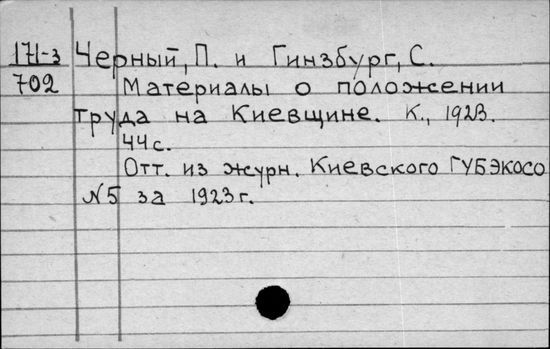 171-3 Черный, П. и Гинзбург, С.
702 Материалы о положении
труда на Киевщине. К., 1923.
44 с.
Отт. из журн. Киевского ГУБЭКОСО
№5 за 1923 г.